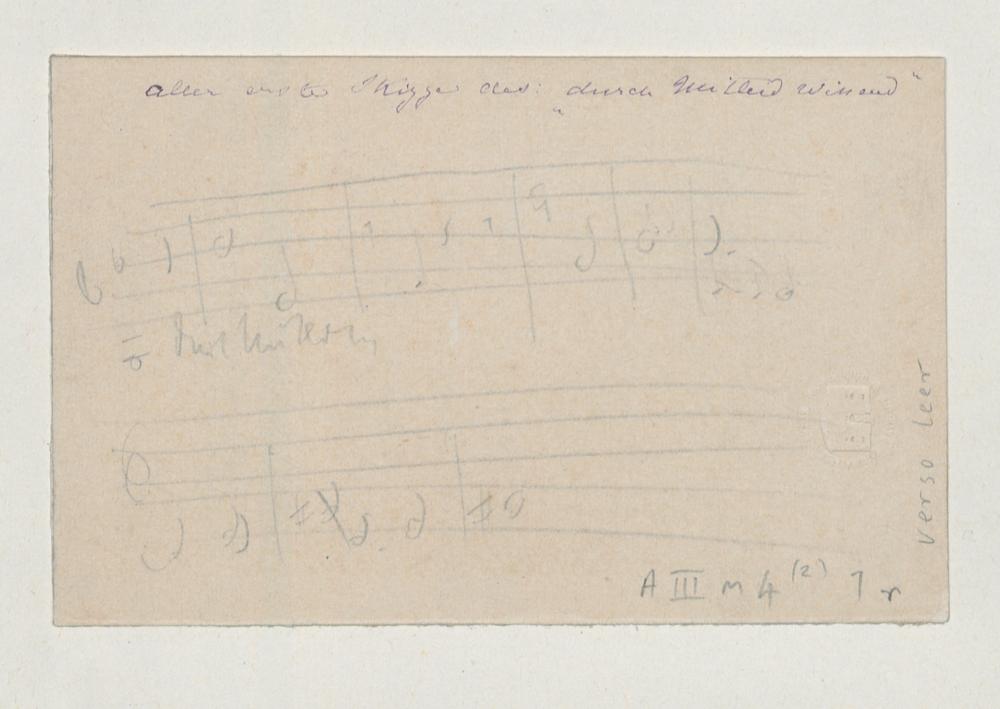 aller erste Skizze des: „durch Mitleid wissend"
A III m 4 (2) 1 r
verso leer